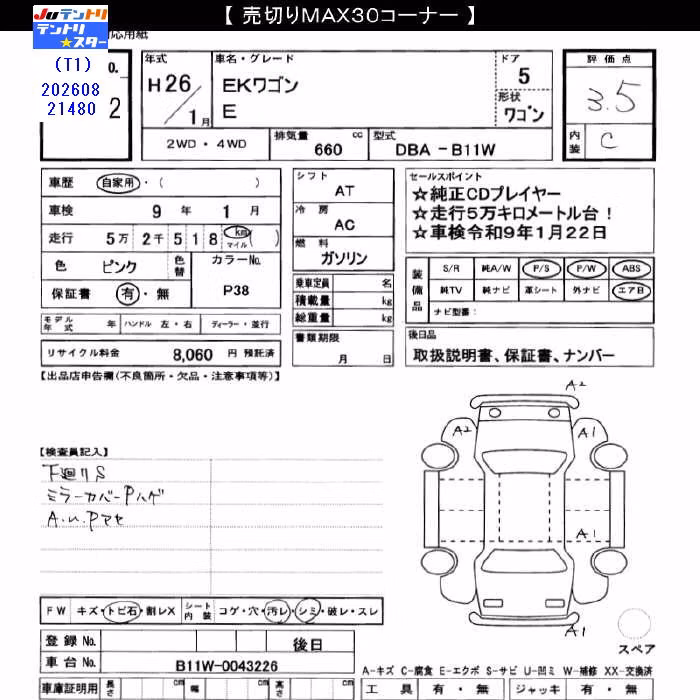 【 売切りMAX30コーナー 】
JUテントリ
テントリ
★スター
応用紙
(T1)
202608
21480
o.
2
年式
H26/1月
車名・グレード
EKワゴン
E
ドア
5
形状
ワゴン
評価点
3.5
内装
C
2WD・4WD
排気量
660
cc
型式
DBA -B11W
車歴
自家用・( )
車検
9 年 1 月
走行
5万 2千 5 1 8 km マイル ( )
色
ピンク
色替
カラーNo.
P38
保証書
有・無
シフト
AT
冷房
AC
燃料
ガソリン
乗車定員 名
積載量 kg
総重量 kg
書類期限
月 日
セールスポイント
☆純正CDプレイヤー
☆走行5万キロメートル台!
☆車検令和9年1月22日
装備品
S/R 純A/W P/S P/W ABS
純TV 純ナビ 革シート 外ナビ エアB
ナビ型番:
モデル年式 年 ハンドル 左・右 ディーラー・並行
リサイクル料金 8,060 円 預託済
後日品
取扱説明書、保証書、ナンバー
【出品店申告欄(不良箇所・欠品・注意事項等)】
【検査員記入】
下廻りS
ミラーカバーPハゲ
A.u.Pアセ
A2
A2
A1
A1
A1
FW キズ・トビ石・割レX
シート内装 コゲ・穴・汚レ・シミ・破レ・スレ
登録No. 後日
車台No. B11W-0043226
車庫証明用 長さ cm 幅 cm 高さ cm
スペア
A-キズ C-腐食 E-エクボ S-サビ U-凹ミ W-補修 XX-交換済
工具 有・無 ジャッキ 有・無